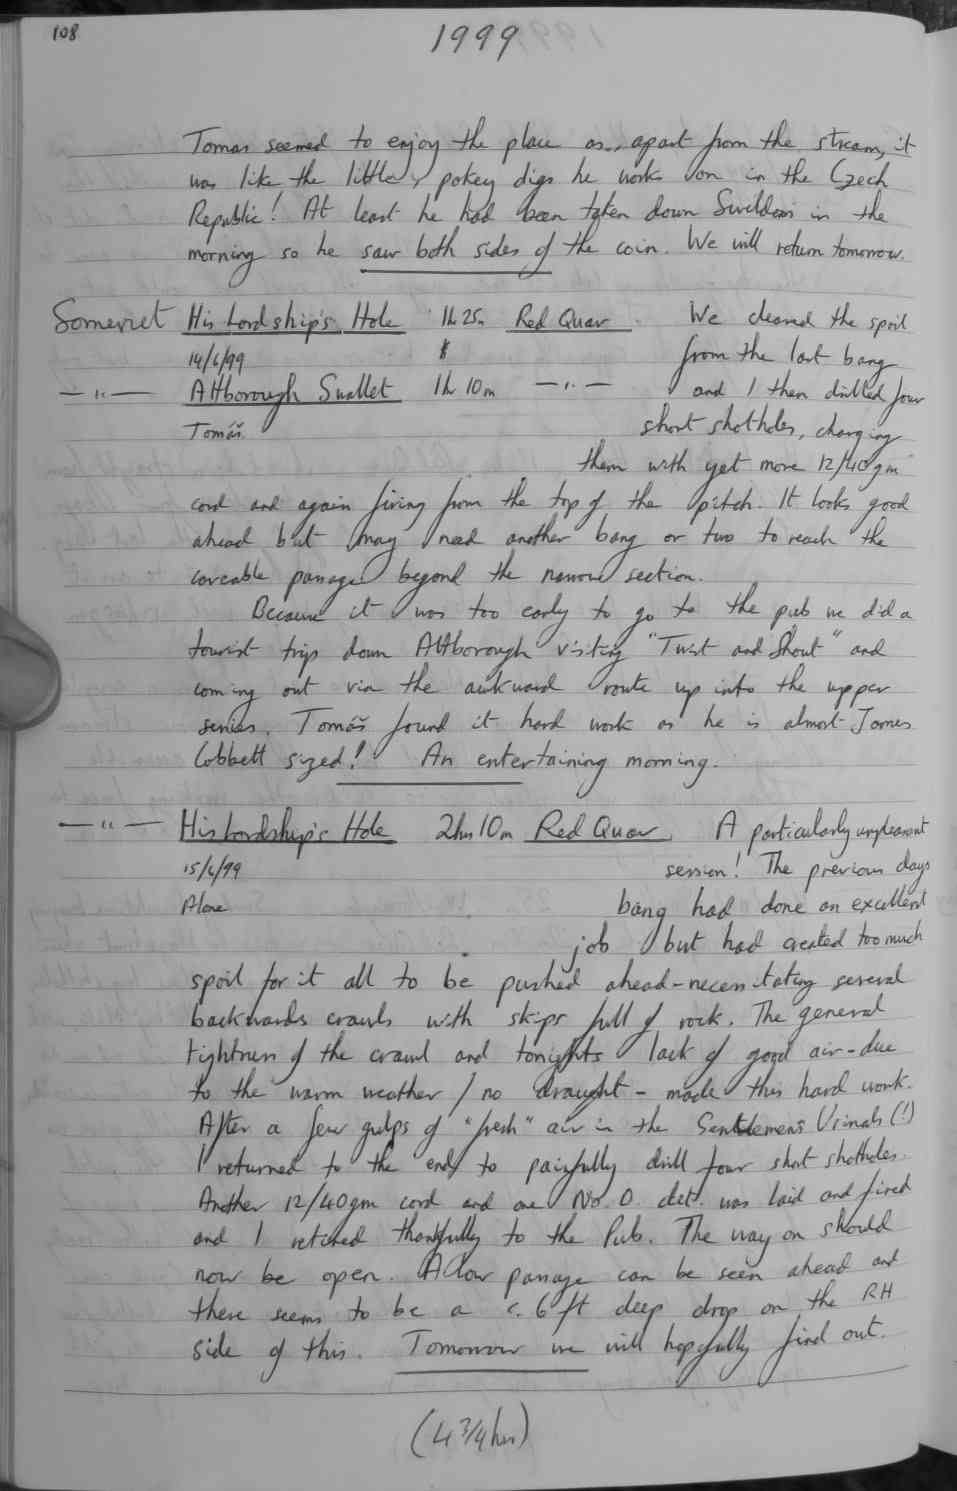 108
1999
Tomas seemed to enjoy the place as, apart from the stream, it
was like the little, pokey digs he works on in the Czech
Republic! At least he had been taken down Swildons in the
morning so he saw both sides of the coin. We will return tomorrow.
Somerset His Lordship's Hole 1h 25m Red Quar. We cleared the spoil
14/6/99 & from the last bang
—"— Attborough Swallet 1h 10m —"— and I then drilled four
Tomáš. short shotholes, charging
them with yet more 12/40gm
cord and again firing from the top of the pitch. It looks good
ahead but may need another bang or two to reach the
caveable passage beyond the narrow section.
Because it was too early to go to the pub we did a
tourist trip down Attborough visiting "Twist and Shout" and
coming out via the awkward route up into the upper
series. Tomáš found it hard work as he is almost James
Cobbett sized! An entertaining morning.
—"— His Lordship's Hole 2hrs 10m Red Quar. A particularly unpleasant
15/6/99 session! The previous days
Alone bang had done an excellent
job but had created too much
spoil for it all to be pushed ahead - necessitating several
backwards crawls with skips full of rock. The general
tightness of the crawl and tonights lack of good air - due
to the warm weather / no draught - made this hard work.
After a few gulps of "fresh" air in the Gentlemens Urinals (!)
I returned to the end to painfully drill four short shotholes.
Another 12/40gm cord and one No. 0. det. was laid and fired
and I retired thankfully to the Pub. The way on should
now be open. A low passage can be seen ahead and
there seems to be a c. 6 ft deep drop on the RH
side of this. Tomorrow we will hopefully find out.
(4 3/4 hrs)